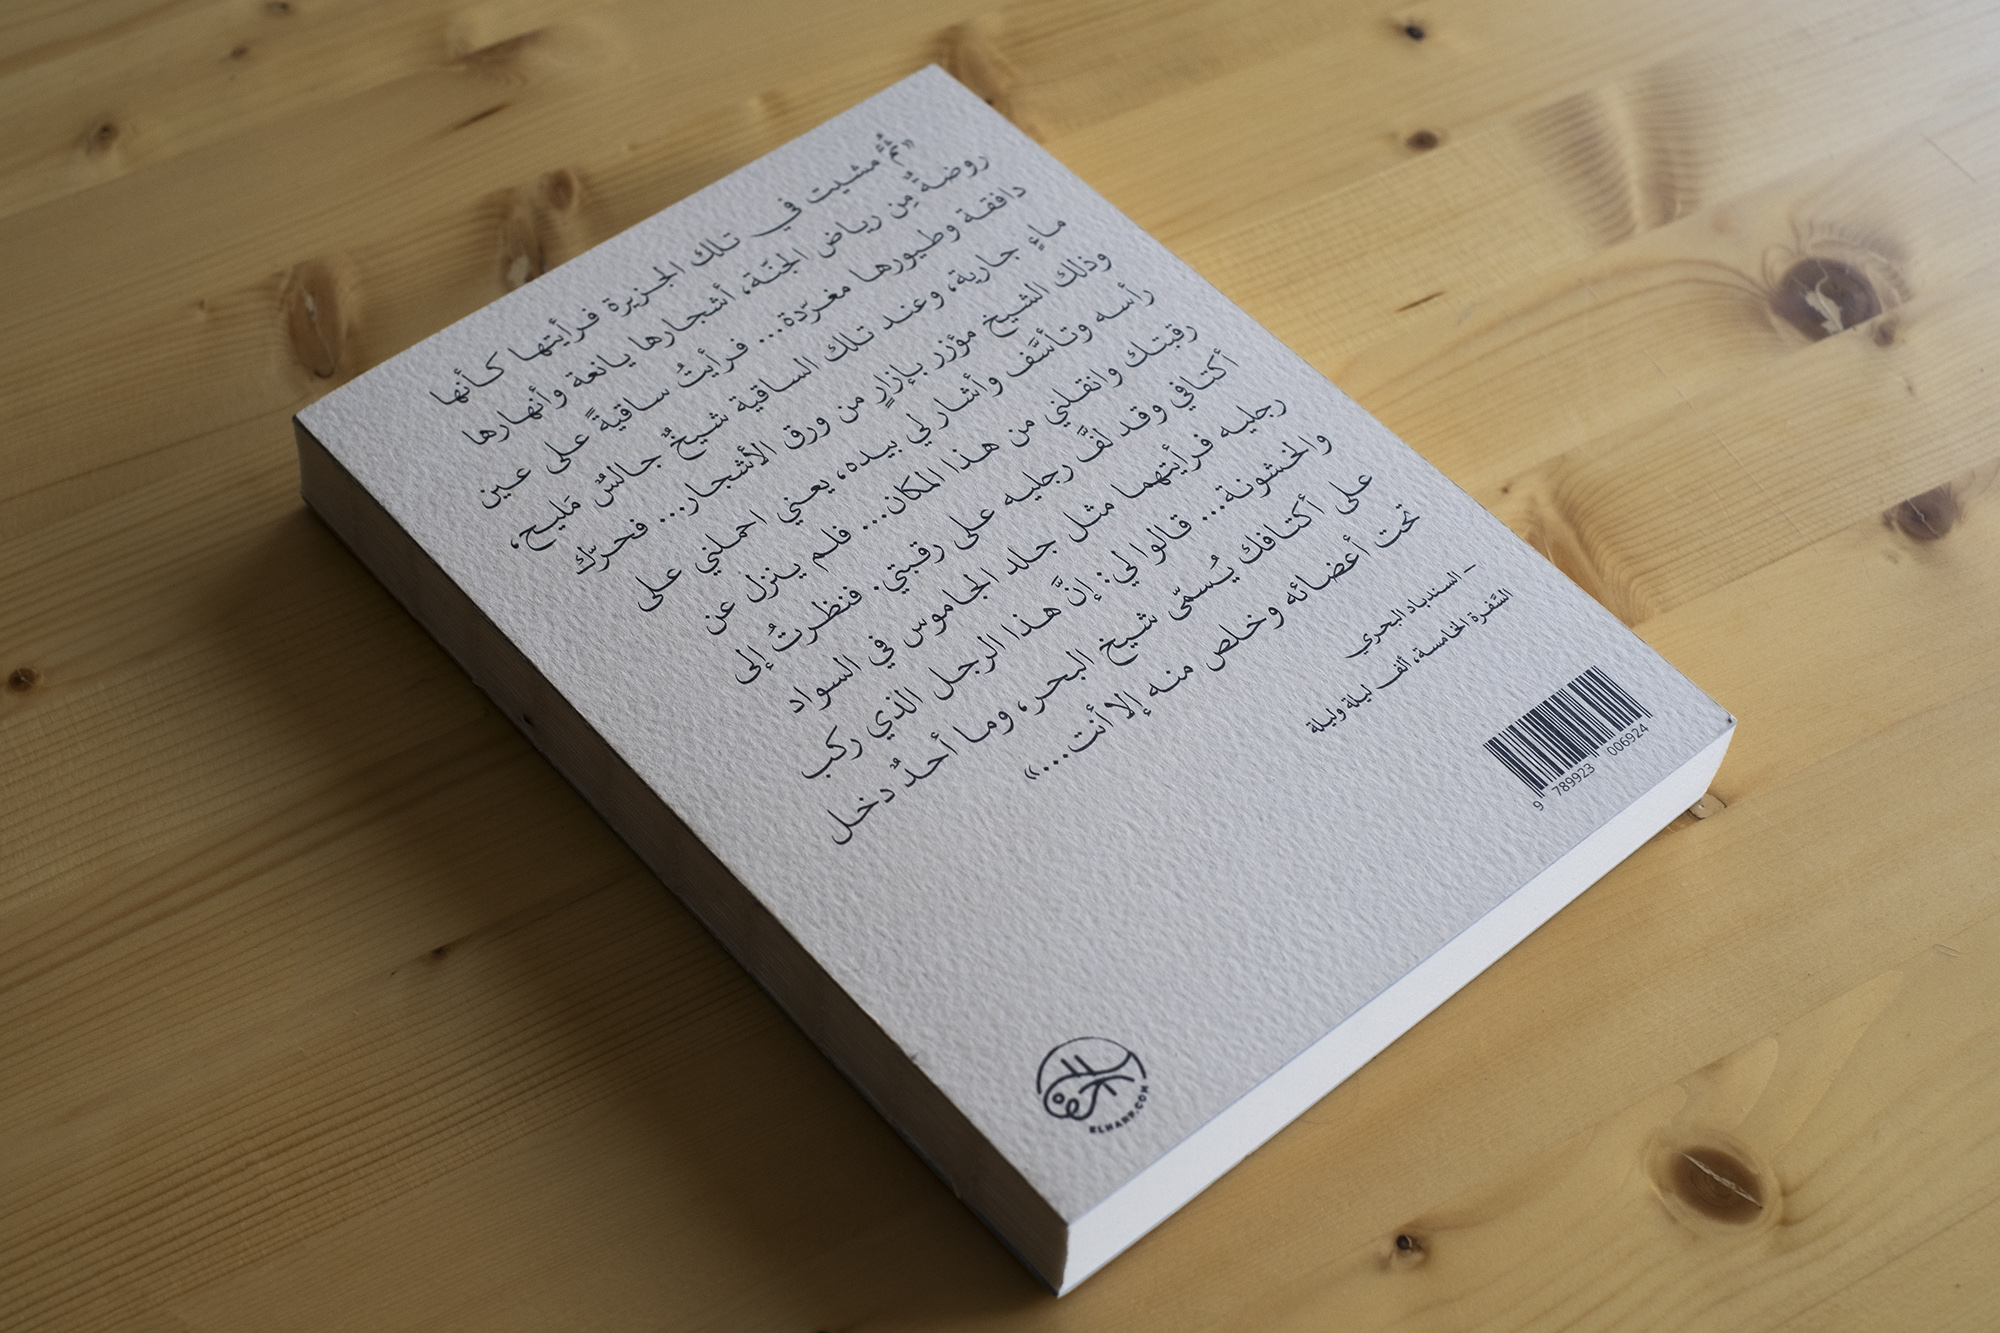 «ثُمَّ مشيت في تلك الجزيرة فرأيتها كأنها
روضةٌ مِن رياض الجنّة، أشجارها يانعة وأنهارها
دافقة وطيورها مغرّدة... فرأيتُ ساقيةً على عين
ماءٍ جارية، وعند تلك الساقية شيخٌ جالسٌ مَليح،
وذلك الشيخ مؤزر بإزارٍ من ورق الأشجار... فحرّك
رأسه وتأسَّف وأشار لي بيده، يعني احملني على
رقبتك وانقلني من هذا المكان... فلم ينزل عن
أكتافي وقد لفَّ رجليه على رقبتي. فنظرتُ إلى
رجليه فرأيتهما مثل جلد الجاموس في السواد
والخشونة... قالوا لي: إنَّ هذا الرجل الذي ركب
على أكتافك يُسمّى شيخ البحر، وما أحدٌ دخل
تحت أعضائه وخلص منه إلا أنت...»
– السندباد البحري
السَّفرة الخامسة، ألف ليلة وليلة
9 789923 006924
ELHARF.COM